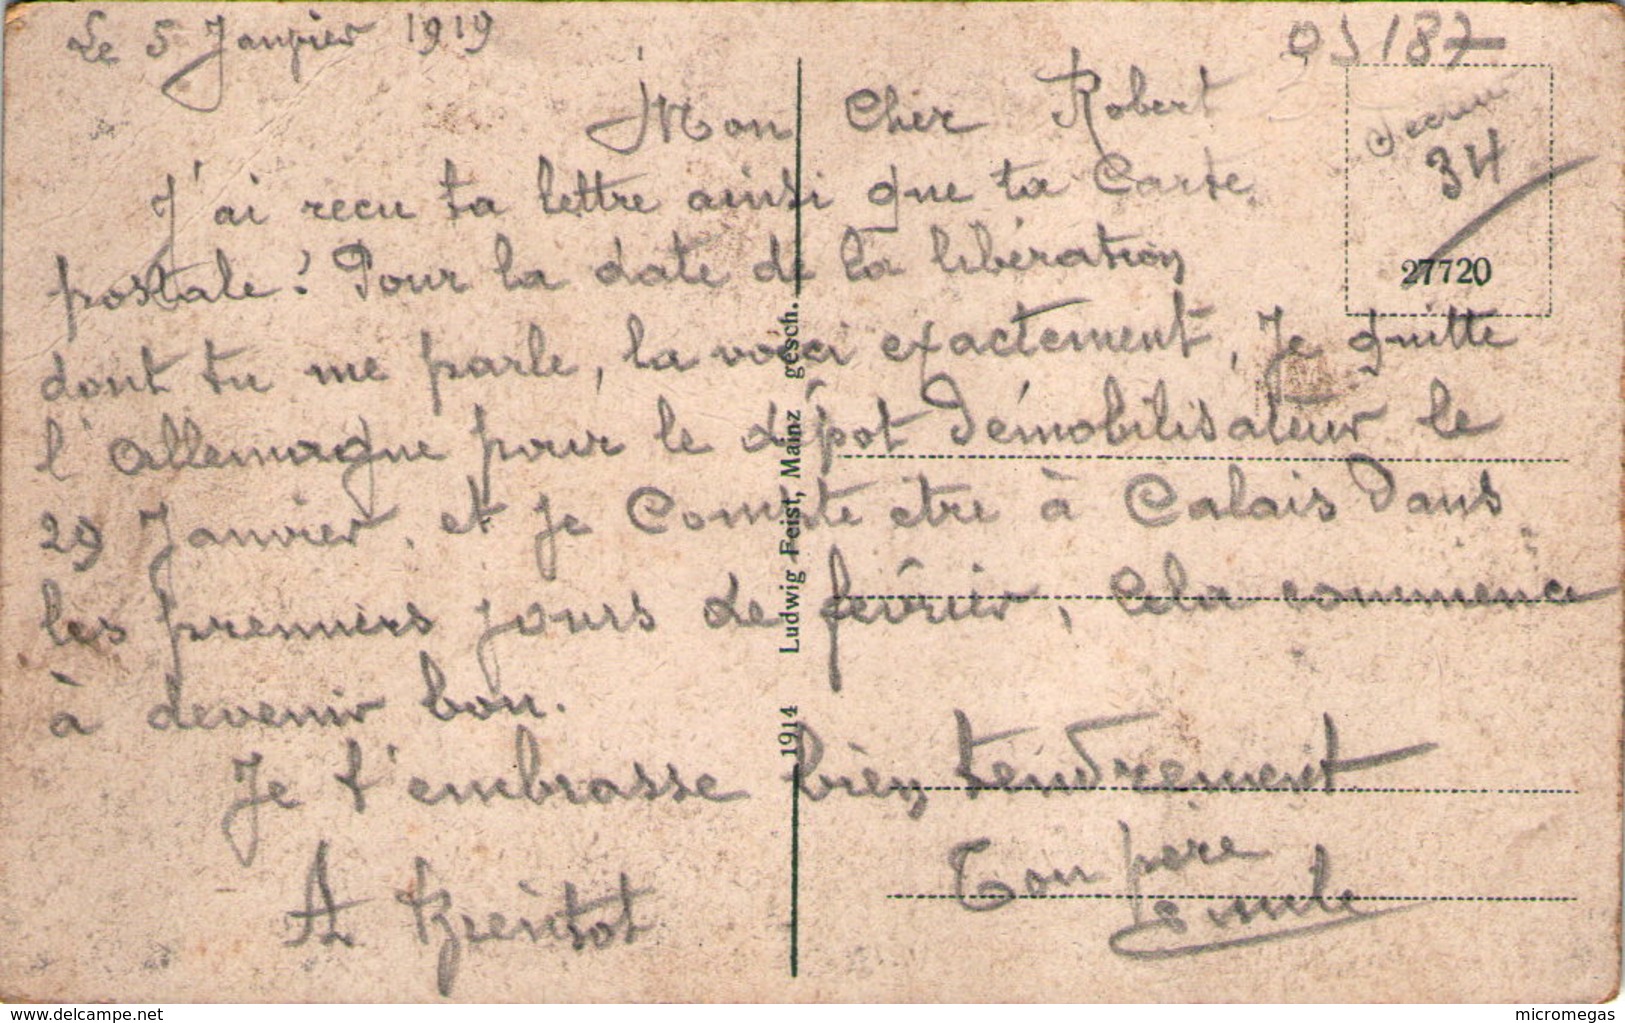 Le 5 Janvier 1919
OJ 187
Mon Cher Robert
34
J'ai recu ta lettre ainsi que ta Carte
postale! Pour la date de la libération
27720
dont tu me parle, la voici exactement, Je quitte
l'Allemagne pour le dépot Démobilisateur le
29 Janvier, et je Compte etre à Calais Dans
les premiers jours de février, Cela commence
à devenir bon.
Je t'embrasse bien tendrement
Ton père
Emile
A Brentot
1914 Ludwig Feist, Mainz gesch.
www.delcampe.net
micromegas